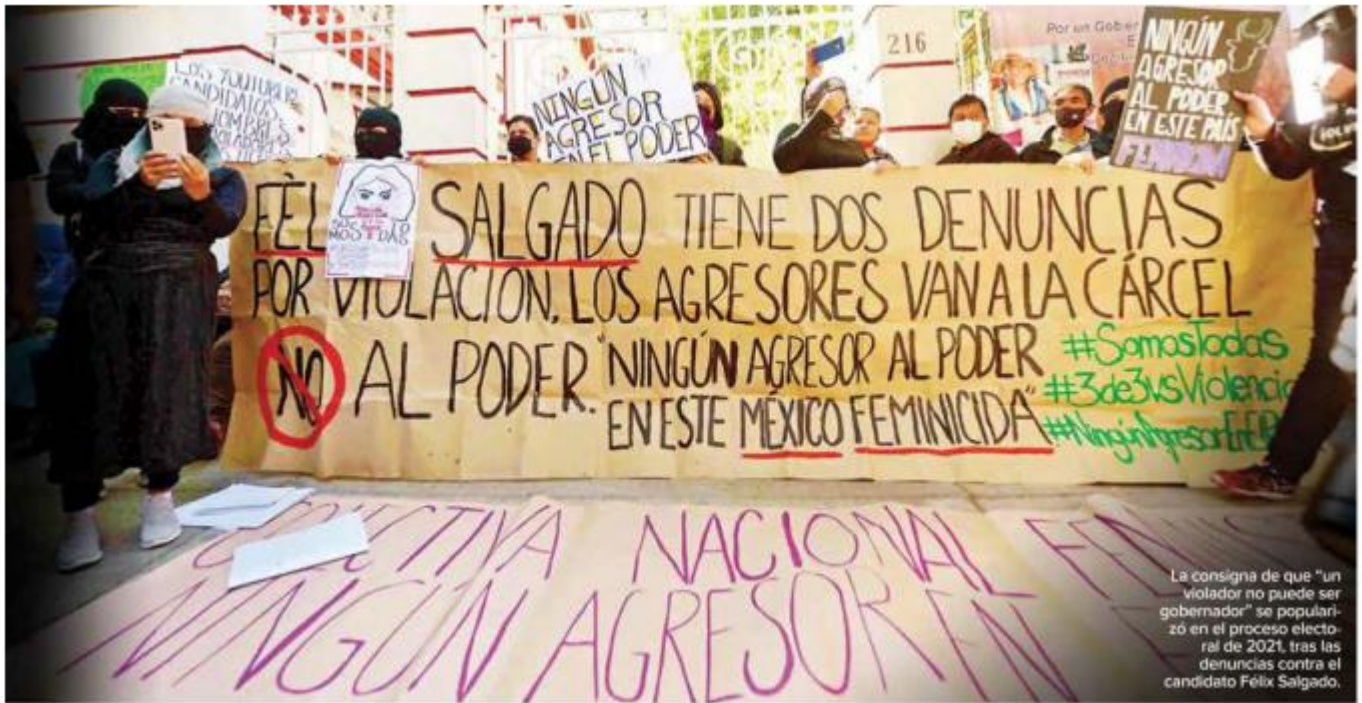 216
Por un Gober
LOS
CANDIDATOS
NINGÚN
AGRESOR
EN EL PODER
NINGÚN
AGRESOR
AL PODER
EN ESTE PAÍS
FÉL SALGADO TIENE DOS DENUNCIAS
POR VIOLACIÓN, LOS AGRESORES VAN A LA CÁRCEL
NO AL PODER. "NINGÚN AGRESOR AL PODER
EN ESTE MÉXICO FEMINICIDA"
#SomosTodas
#3de3vsViolencia
#NingúnAgresorEnElP
COLECTIVA NACIONAL FEMINIS
NINGÚN AGRESOR EN E
La consigna de que "un
violador no puede ser
gobernador" se populari-
zó en el proceso electo-
ral de 2021, tras las
denuncias contra el
candidato Félix Salgado.